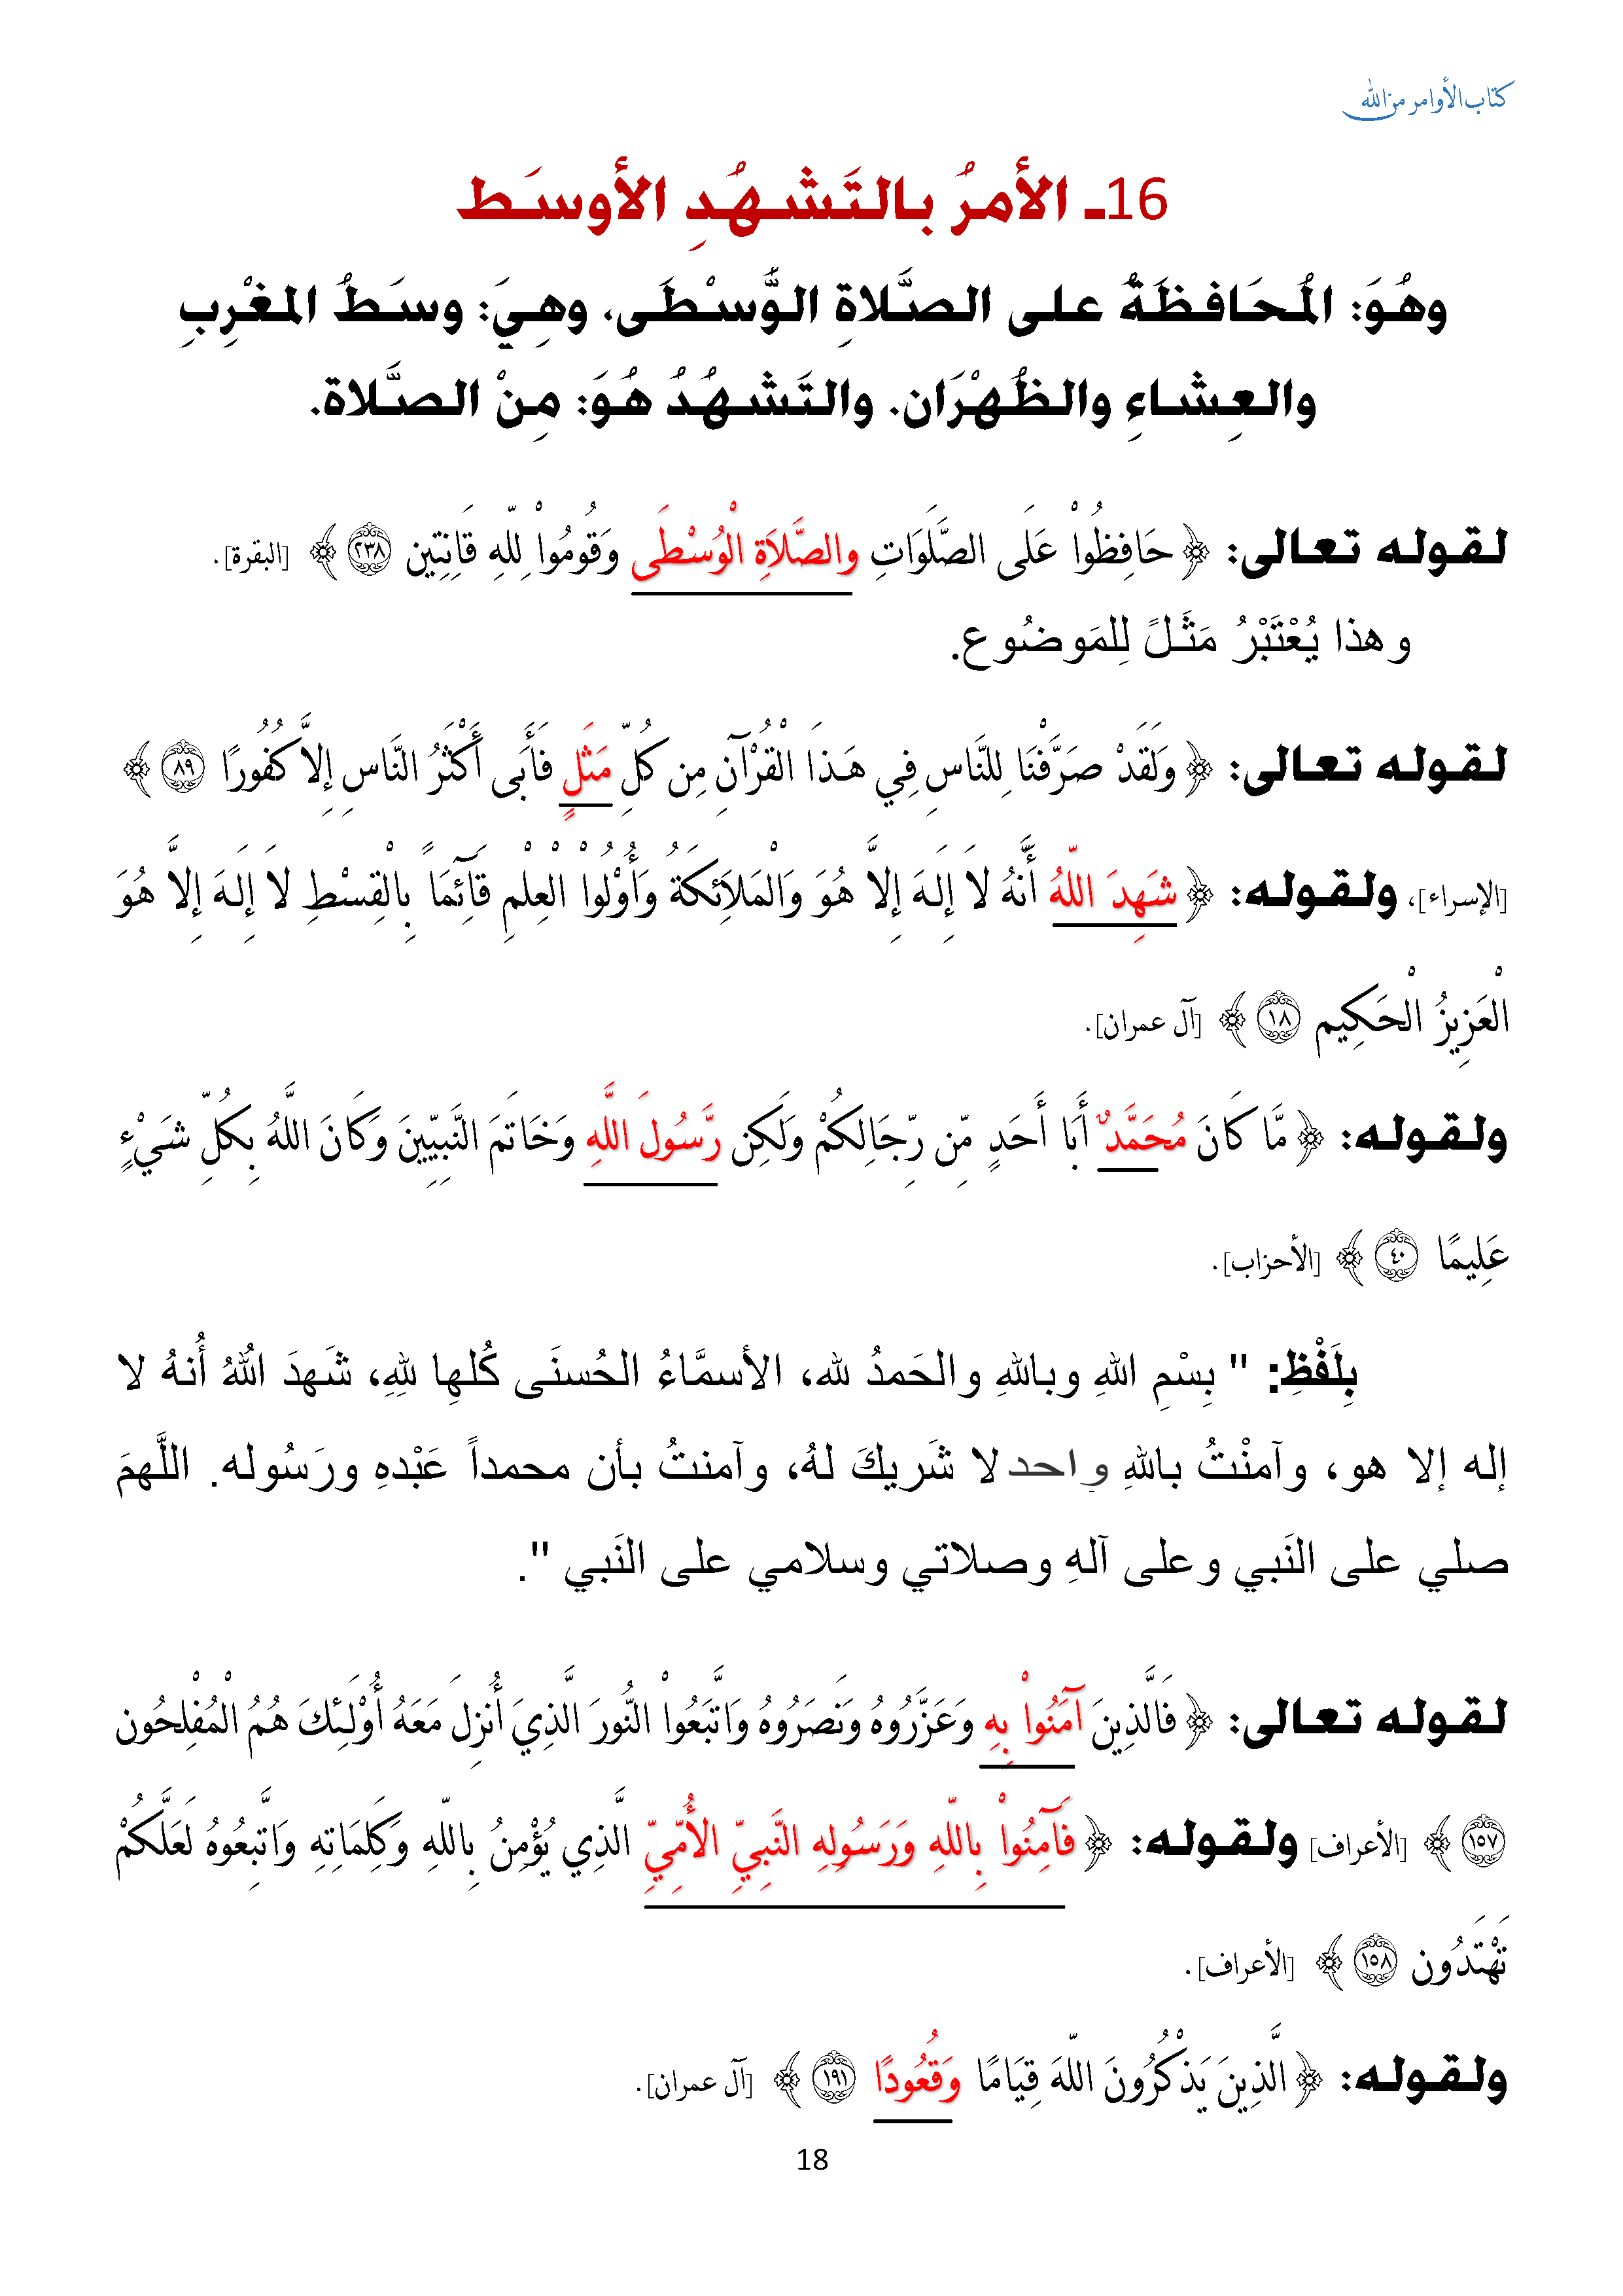 كتاب الأوامر من الله
16ـ الأمرُ بالتَشهُدِ الأوسَط
وهُوَ: المُحَافظَةُ على الصَّلاةِ الوُّسْطَى، وهِيَ: وسَطُ المغْرِبِ
والعِشاءِ والظُهْرَان. والتَشهُدُ هُوَ: مِنْ الصَّلاة.
لقوله تعالى: ﴿ حَافِظُواْ عَلَى الصَّلَوَاتِ والصَّلاَةِ الْوُسْطَى وَقُومُواْ لِلّهِ قَانِتِين ٢٣٨ ﴾ [البقرة].
وهذا يُعْتَبْرُ مَثَلً لِلمَوضُوع.
لقوله تعالى: ﴿ وَلَقَدْ صَرَّفْنَا لِلنَّاسِ فِي هَـذَا الْقُرْآنِ مِن كُلِّ مَثَلٍ فَأَبَى أَكْثَرُ النَّاسِ إِلاَّ كُفُورًا ٨٩ ﴾
[الإسراء]، ولقوله: ﴿ شَهِدَ اللّهُ أَنَّهُ لاَ إِلَـهَ إِلاَّ هُوَ وَالْمَلاَئِكَةُ وَأُوْلُواْ الْعِلْمِ قَآئِمَاً بِالْقِسْطِ لاَ إِلَـهَ إِلاَّ هُوَ
الْعَزِيزُ الْحَكِيم ١٨ ﴾ [آل عمران].
ولقوله: ﴿ مَّا كَانَ مُحَمَّدٌ أَبَا أَحَدٍ مِّن رِّجَالِكُمْ وَلَكِن رَّسُولَ اللَّهِ وَخَاتَمَ النَّبِيِّينَ وَكَانَ اللَّهُ بِكُلِّ شَيْءٍ
عَلِيمًا ٤٠ ﴾ [الأحزاب].
بِلَفْظِ: " بِسْمِ اللهِ وباللهِ والحَمدُ لله، الأسمَّاءُ الحُسنَى كُلهِا للهِ، شَهدَ اللهُ أُنهُ لا
إله إلا هو، وآمنْتُ باللهِ واحد لا شَريكَ لهُ، وآمنتُ بأن محمداً عَبْدهِ ورَسُوله. اللَّهمَ
صلي على النَبي وعلى آلهِ وصلاتي وسلامي على النَبي ".
لقوله تعالى: ﴿ فَالَّذِينَ آمَنُواْ بِهِ وَعَزَّرُوهُ وَنَصَرُوهُ وَاتَّبَعُواْ النُّورَ الَّذِيَ أُنزِلَ مَعَهُ أُوْلَـئِكَ هُمُ الْمُفْلِحُون
١٥٧ ﴾ [الأعراف] ولقوله: ﴿ فَآمِنُواْ بِاللّهِ وَرَسُولِهِ النَّبِيِّ الأُمِّيِّ الَّذِي يُؤْمِنُ بِاللّهِ وَكَلِمَاتِهِ وَاتَّبِعُوهُ لَعَلَّكُمْ
تَهْتَدُون ١٥٨ ﴾ [الأعراف].
ولقوله: ﴿ الَّذِينَ يَذْكُرُونَ اللّهَ قِيَامًا وَقُعُودًا ١٩١ ﴾ [آل عمران].
18